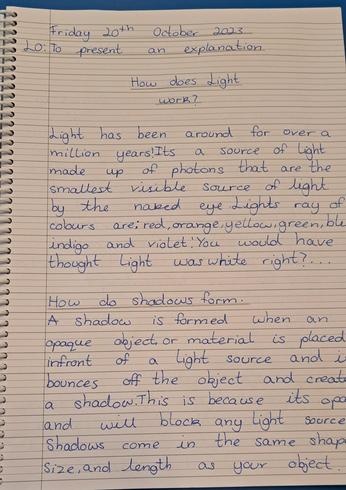 Friday 20th October 2023
LO: To present an explanation.
How does Light
work?
Light has been around for over a
million years! Its a source of light
made up of photons that are the
smallest visible source of light
by the naked eye. Lights ray of
colours are; red, orange, yellow, green, blu
indigo and violet! You would have
thought Light was white right?...
How do shadows form.
A shadow is formed when an
opaque object, or material is placed
infront of a light source and i
bounces off the object and creat
a shadow. This is because its opa
and will block any light source
Shadows come in the same shap
size, and length as your object.